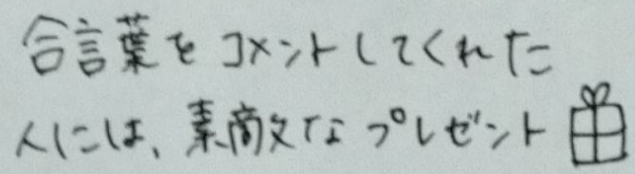 合言葉をコメントしてくれた
人には、素敵なプレゼント